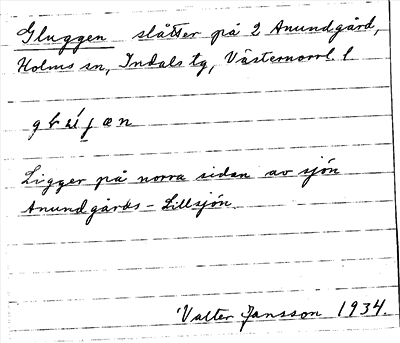 Gluggen slåtter på 2 Anundgård,
Holms sn, Indals tg, Västernorrl. l
Ligger på norra sidan av sjön
Anundgårds-Lillsjön.
Valter Jansson 1934.